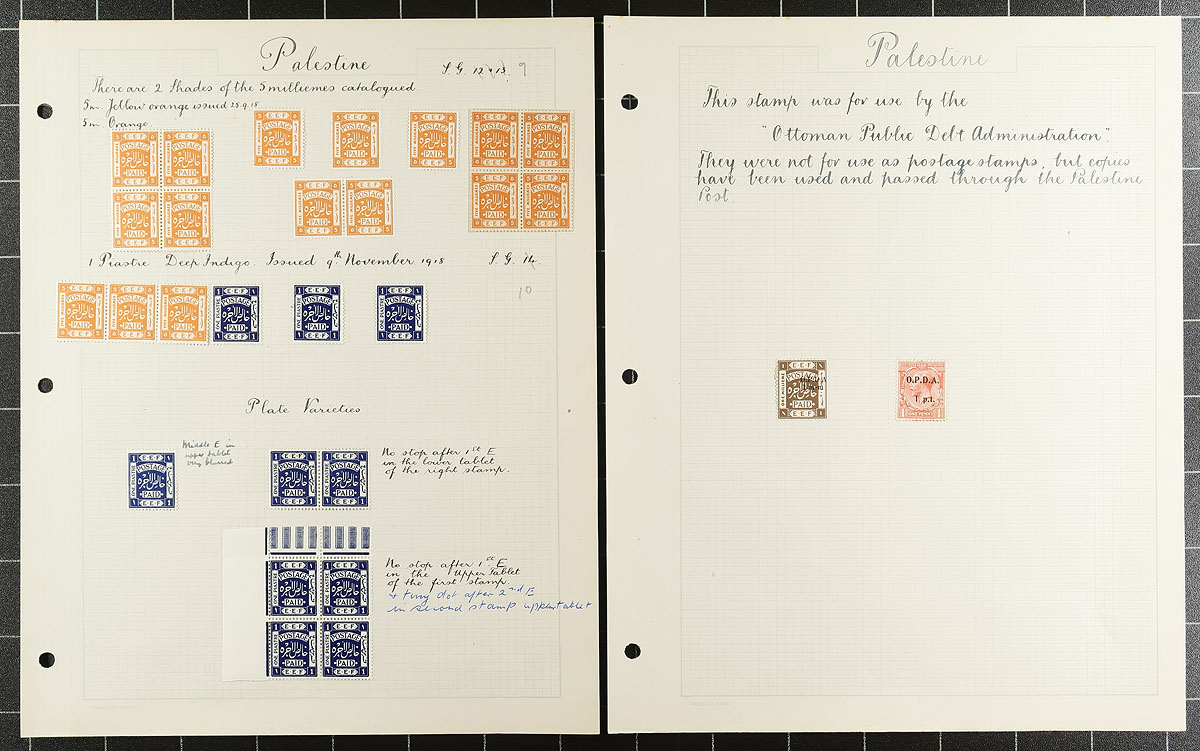 Palestine
S.G. 12 & 13. 9
There are 2 Shades of the 5 milliemes catalogued
5m. Yellow orange issued 25.9.18
5m. Orange.
1 Piastre Deep Indigo. Issued 9th November 1918 S.G. 14.
10
Plate Varieties
Middle E in
upper tablet
very blurred
No stop after 1st E
in the lower tablet
of the right stamp.
No stop after 1st E
in the Upper Tablet
of the first stamp.
& tiny dot after 2nd E
in second stamp upper tablet
Palestine
This stamp was for use by the
"Ottoman Public Debt Administration".
They were not for use as postage stamps, but copies
have been used and passed through the Palestine
Post.
E.E.F.
POSTAGE
خالص الأجرة
PAID
E.E.F.
ONE PIASTRE
ONE MILLIEME
O.P.D.A.
1 p.t.
1 ONE PENNY 1